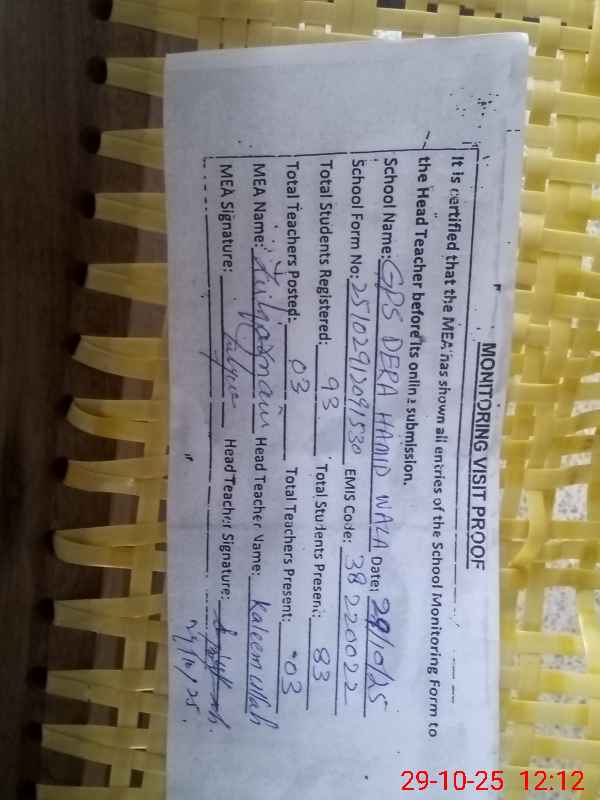 MONITORING VISIT PROOF
It is certified that the MEA has shown all entries of the School Monitoring Form to
the Head Teacher before its online submission.
School Name: GPS DERA HAMID WALA Date: 29/10/25
School Form No: 25102912091530 EMIS Code: 38220022
Total Students Registered: 93 Total Students Present: 83
Total Teachers Posted: 03 Total Teachers Present: 03
MEA Name: Head Teacher Name: Kaleemullah
MEA Signature: Head Teacher Signature:
29/10/25.
29-10-25 12:12